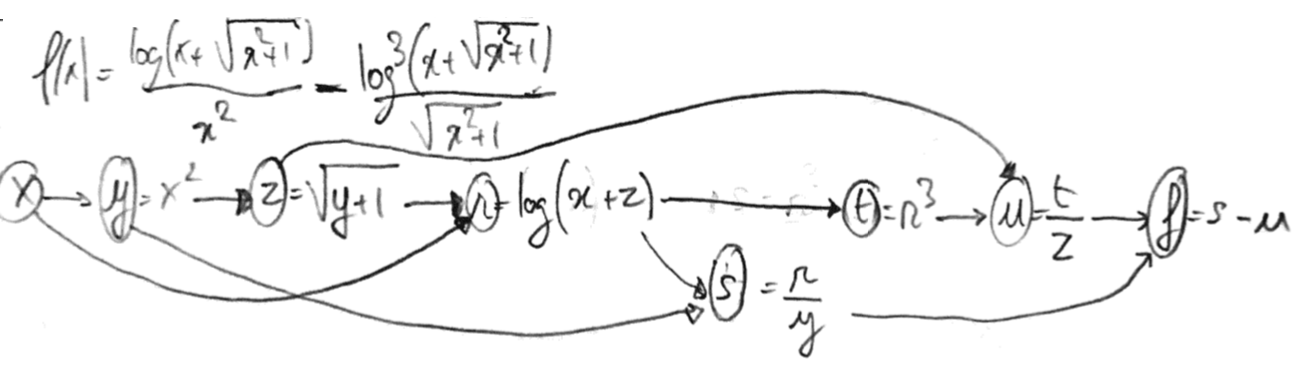 f(x) = log(x+√(x²+1)) / x² - log³(x+√(x²+1)) / √(x²+1)
x → y = x² → z = √(y+1) → r = log(x+z) → t = r³ → u = t/z → f = s - u
s = r/y